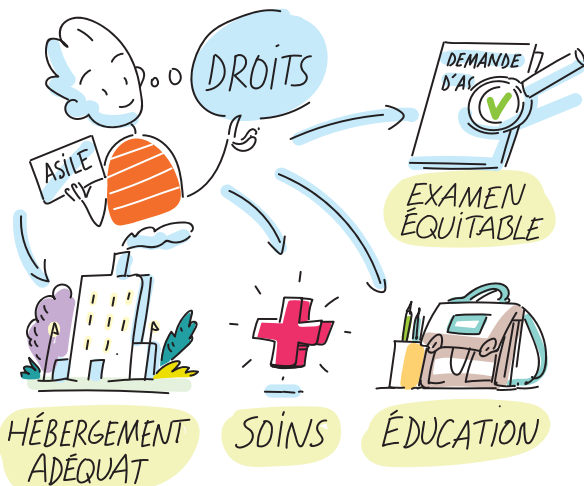 DROITS
ASILE
DEMANDE
D'AS
EXAMEN
ÉQUITABLE
HÉBERGEMENT
ADÉQUAT
SOINS
ÉDUCATION